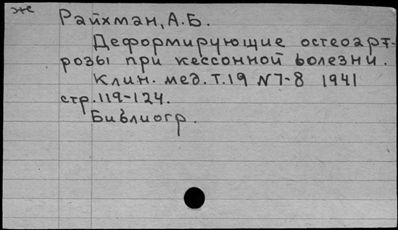 ж
Райхман, А.Б.
Деформирующие остеоарт-
розы при кессонной болезни.
Клин. мед. Т.19 №7-8 1941
стр. 119-124.
Библиогр.